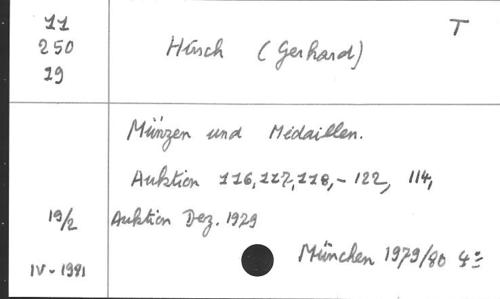 11
250
19
T
Hirsch (Gerhard)
Münzen und Medaillen.
Auktion 116, 117, 118, - 122, 114,
19/2
Auktion Dez. 1979
München 1979/80 4º
IV - 1981